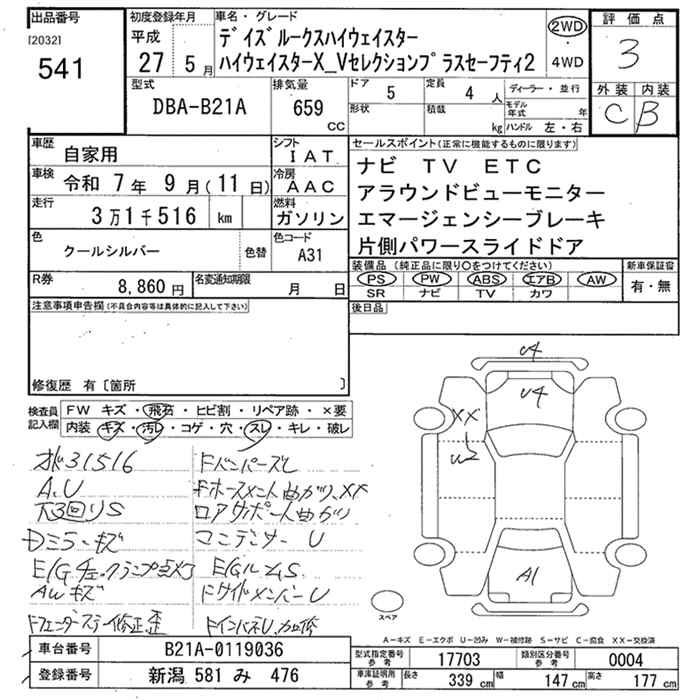 出品番号
[2032]
541
初度登録年月
平成
27 5月
車名・グレード
デイズルークスハイウェイスター
ハイウェイスターX_Vセレクションプラスセーフティ2
2WD
・
4WD
評価点
3
外装 内装
C B
型式
DBA-B21A
排気量
659
cc
ドア
5
定員
4人
形状
積載
kg
ディーラー・並行
モデル年式 年
ハンドル 左・右
車歴
自家用
シフト
IAT
車検
令和 7年 9月(11日)
冷房
AAC
走行
3万1千516 km
燃料
ガソリン
色
クールシルバー
色替
色コード
A31
R券
8,860円
名変通知期限
月 日
セールスポイント(正常に機能するものに限ります)
ナビ TV ETC
アラウンドビューモニター
エマージェンシーブレーキ
片側パワースライドドア
装備品(純正品に限り○をつけてください)
PS PW ABS エアB AW
SR ナビ TV カワ
新車保証書
有・無
後日品
注意事項申告欄(不具合内容等は具体的に記入して下さい)
修復歴 有〔箇所 〕
検査員記入欄
FW キズ・飛石・ヒビ割・リペア跡・×要
内装・キズ・汚レ・コゲ・穴・スレ・キレ・破レ
31516
A.U
下3回リS
Dミラーキズ
E/Gチェックランプ点×3
AWキズ
Fフェンダーステー修正歪
Fバンパーズレ
Fホースメント曲がり、XX
ロアサポート曲がり
コンデンサーU
E/GルームS
FサイドメンバーU
FインパネU、加修
U4
U4
XX
U2
A1
スペア
A-キズ E-エクボ U-凹み W-補修跡 S-サビ C-腐食 XX-交換済
車台番号
B21A-0119036
登録番号
新潟 581 み 476
型式指定番号
参考
17703
類別区分番号
参考
0004
車庫証明用
参考
長さ
339cm
幅
147cm
高さ
177cm